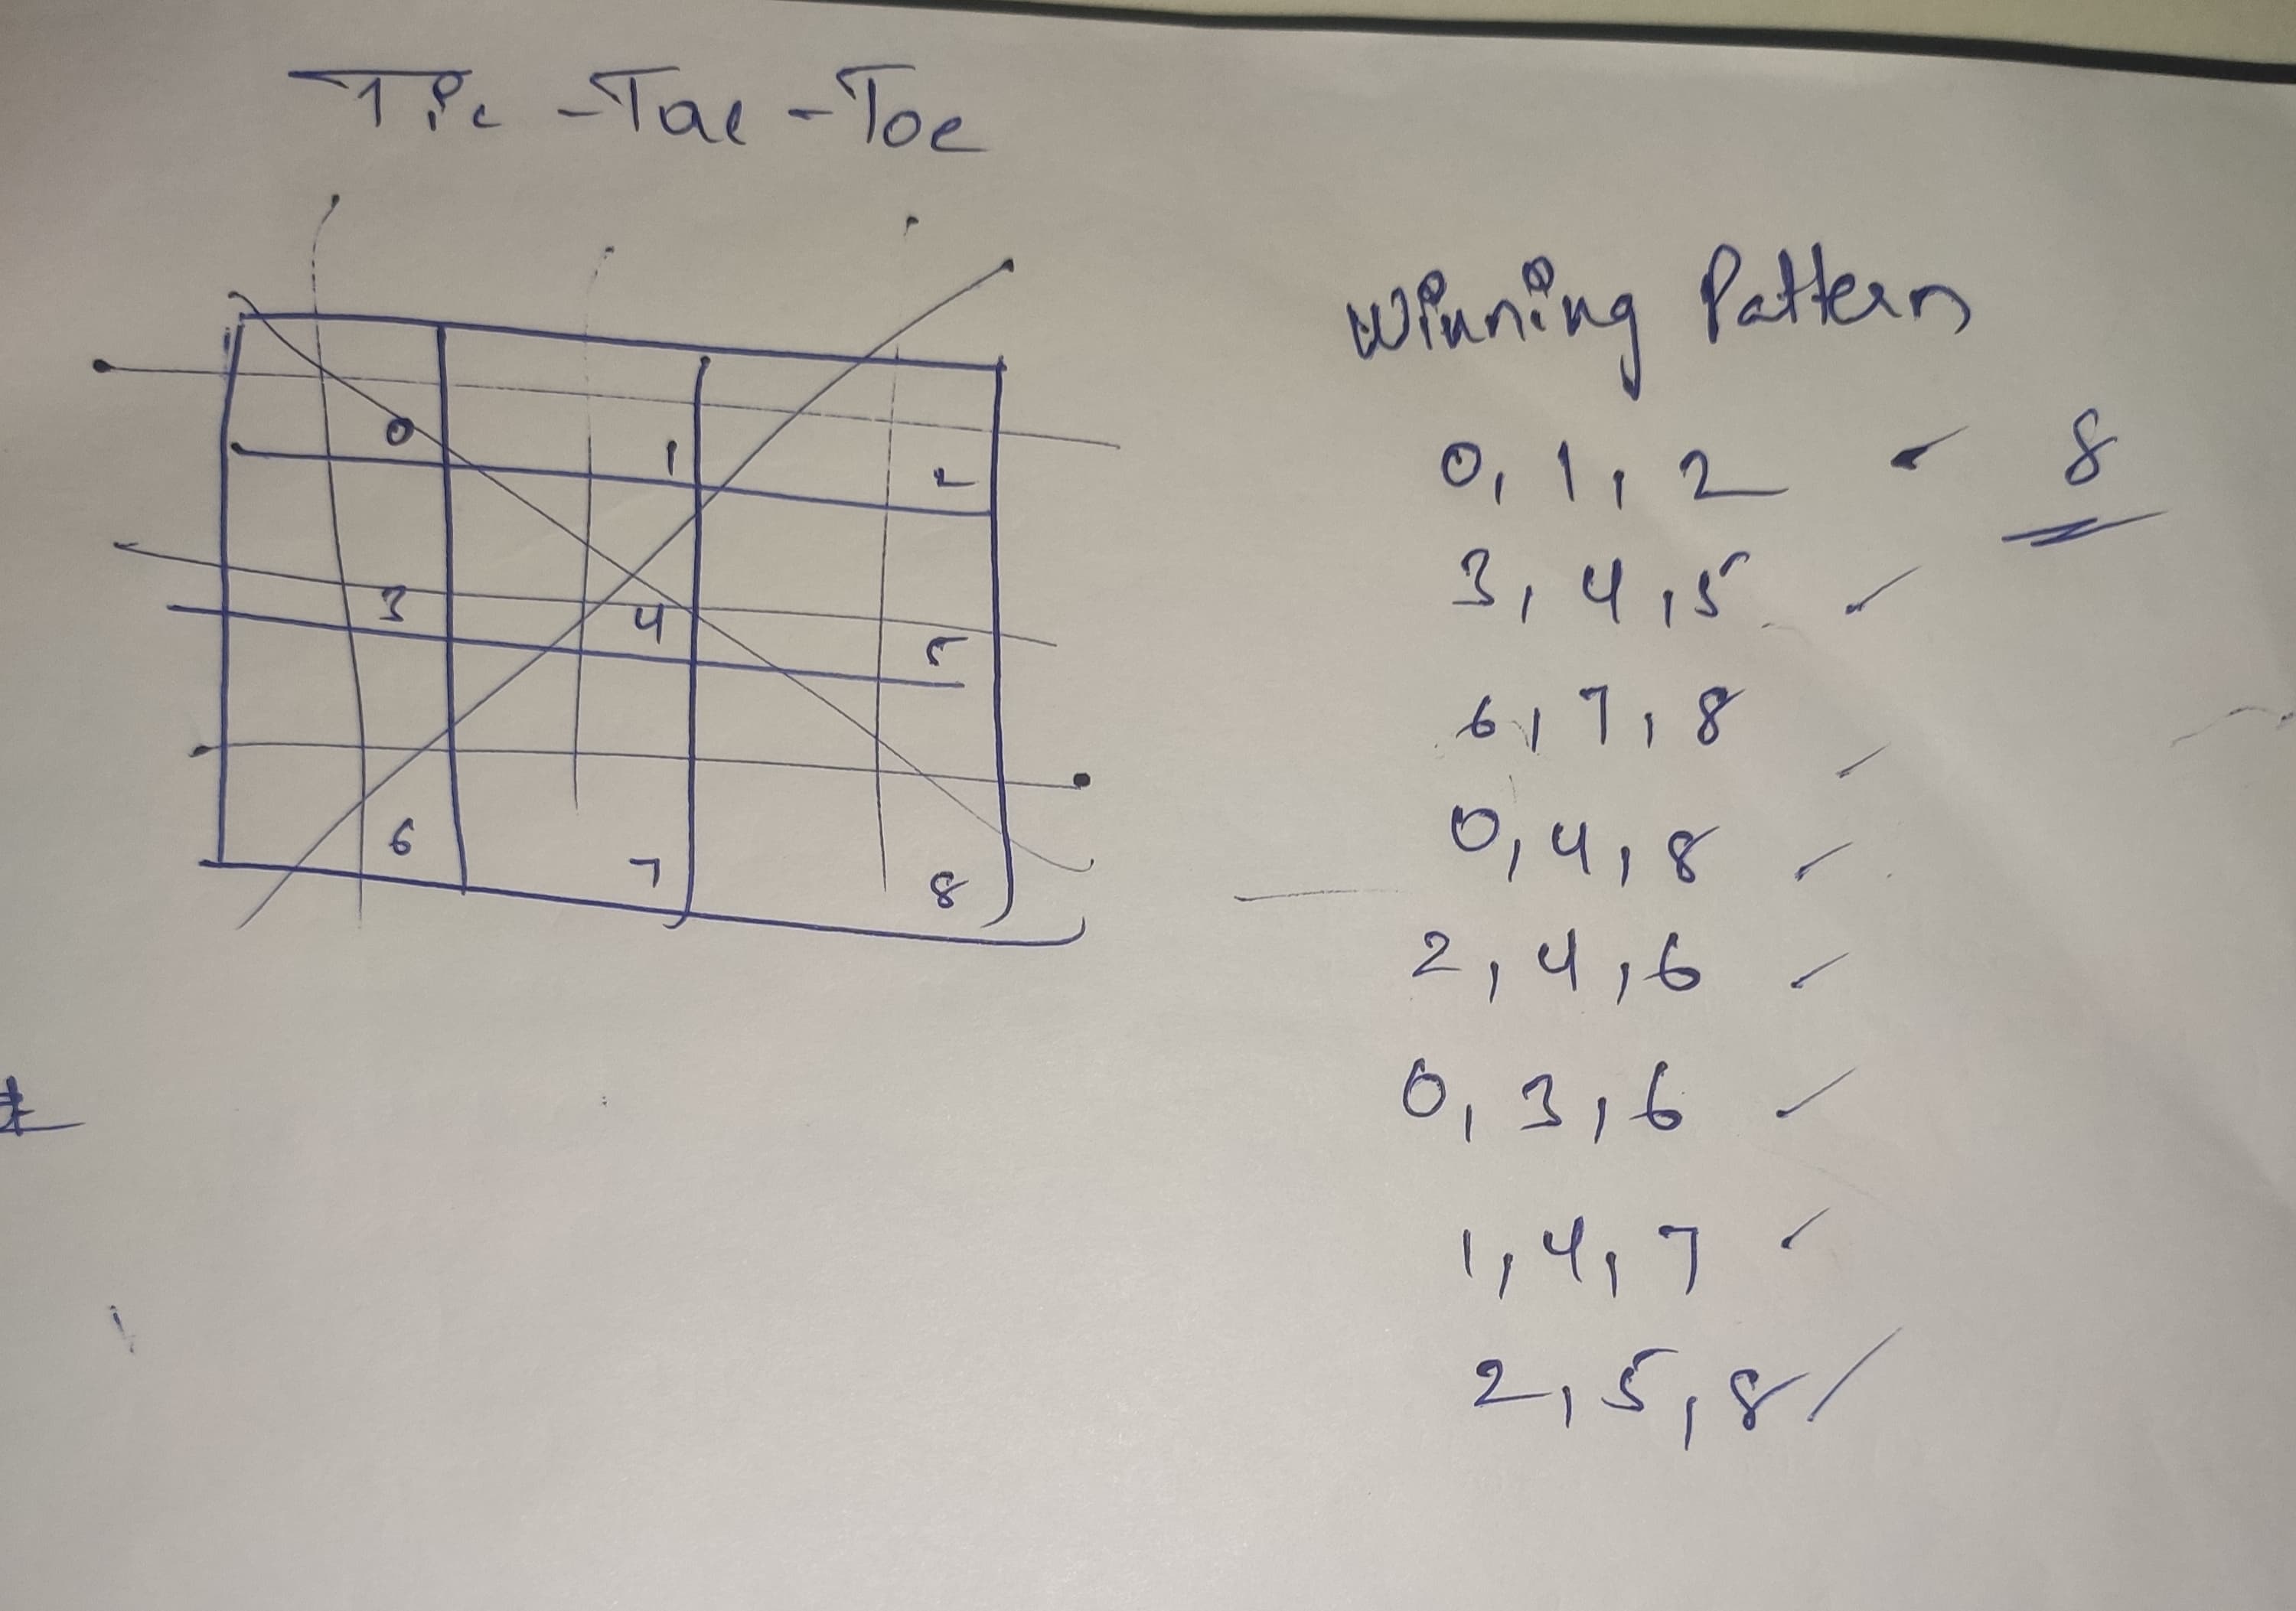 Tic-Tac-Toe
0 1 2
3 4 5
6 7 8
Winning Pattern
0, 1, 2 8
3, 4, 5
6, 7, 8
0, 4, 8
2, 4, 6
0, 3, 6
1, 4, 7
2, 5, 8